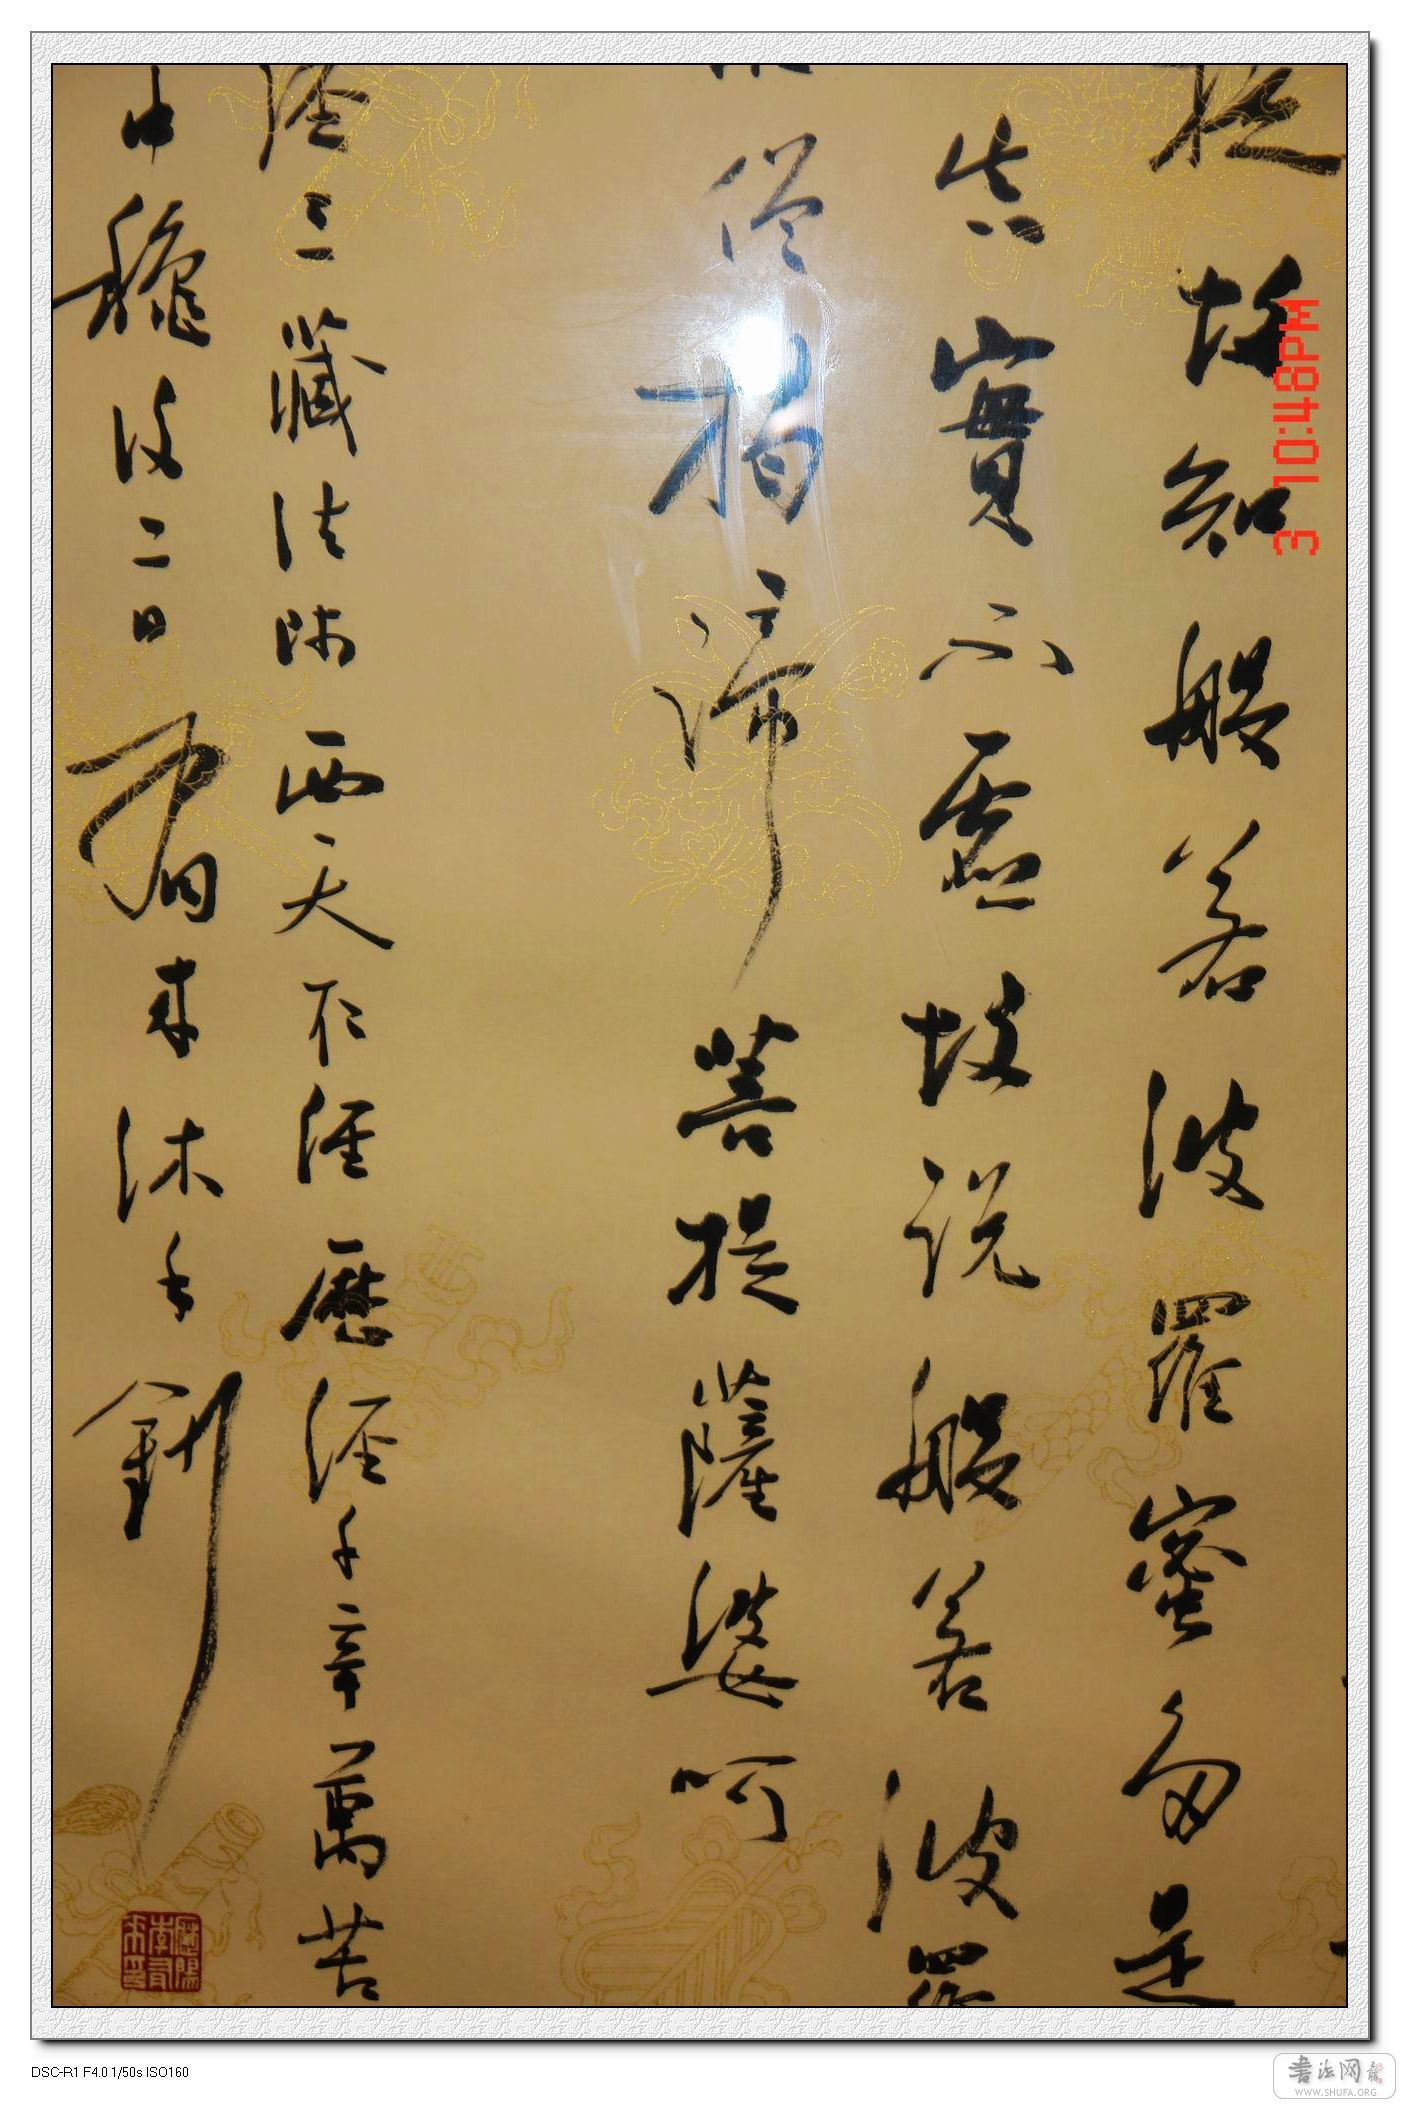 故知般若波羅蜜多是
真實不虛故說般若波羅
僧揭諦菩提薩婆訶
三藏法師西天取經歷經千辛萬苦
申穐後二日有來沐手
10:48PM 3
DSC-R1 F4.0 1/50s ISO160
书法网
WWW.SHUFA.ORG